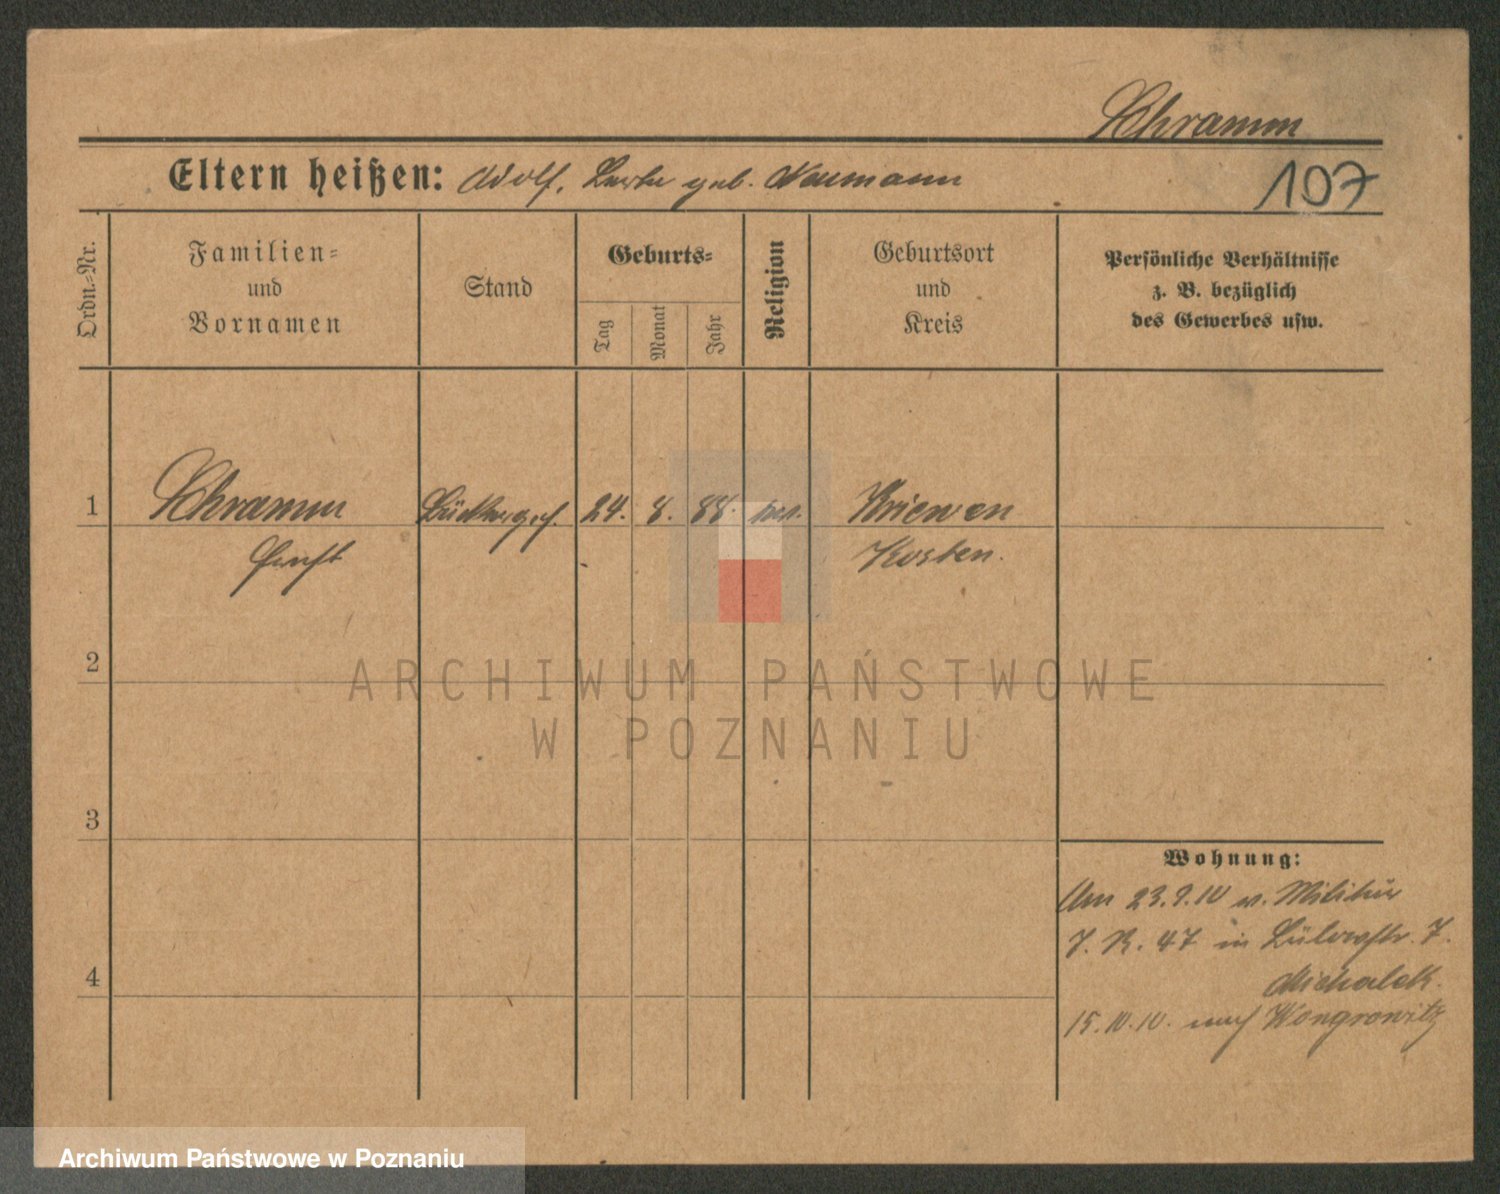 Schramm
Eltern heißen: Adolf, geb. Naumann
107
Ordn.-Nr.
Familien-
und
Vornamen
Stand
Geburts-
Tag
Monat
Jahr
Religion
Geburtsort
und
Kreis
Persönliche Verhältnisse
z. B. bezüglich
des Gewerbes usw.
1
Schramm
24. 8. 88.
Kriewen
Ernst
Kosten.
2
ARCHIWUM PAŃSTWOWE
W POZNANIU
3
Wohnung:
Am 23.9.10 v. Militär
J. R. 47 in 7.
4
Michalek.
15.10.10. nach Wongrowitz
Archiwum Państwowe w Poznaniu